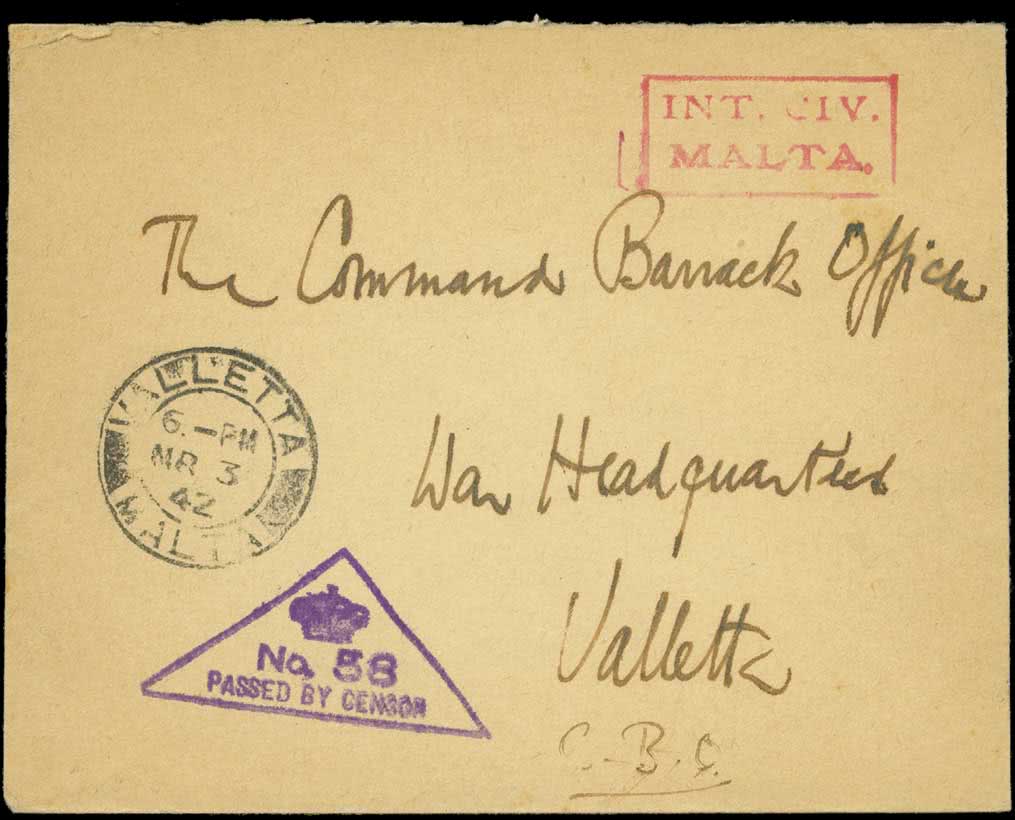 INT. CIV.
MALTA.
The Command Barrack Officer
VALLETTA
6.—PM
MR 3
42
MALTA
War Headquarters
Valletta
No. 58
PASSED BY CENSOR
C.B.O.